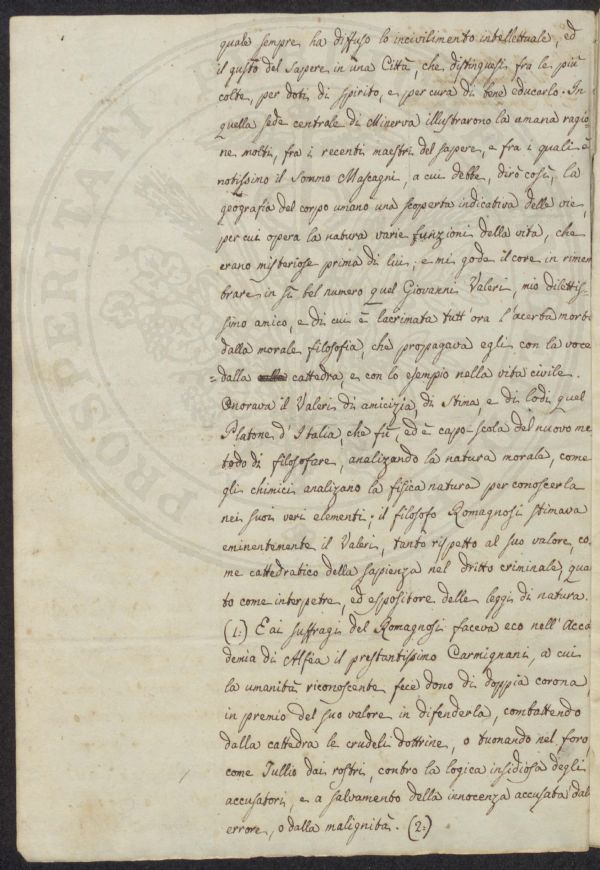 quale sempre ha diffuso lo incivilimento intellettuale, ed
il gusto del sapere in una Città, che distinguesi fra le più
colte, per doti di spirito, e per cura di bene educarlo. In
quella sede centrale di Minerva illustrarono la umana ragio
ne molti, fra i recenti maestri del sapere, e fra i quali è
notissimo il Sommo Mascagni, a cui debbe, dirò così, la
geografia del corpo umano una scoperta indicativa delle vie,
per cui opera la natura varie funzioni della vita, che
erano misteriose prima di lui; e mi gode il core in rimem
brare in sì bel numero quel Giovanni Valeri, mio dilettis-
simo amico, e di cui è lacrimata tutt'ora l'acerba morte
dalla morale filosofia, che propagava egli con la voce
=dalla cattedra, e con lo esempio nella vita civile.
Onorava il Valeri di amicizia, di stima, e di lodi quel
Platone d'Italia che fù, ed è capo-scola del nuovo me
todo di filosofare, analizando la natura morale, come
gli chimici analizano la fisica natura per conoscerla
nei suoi veri elementi; il filosofo Romagnosi stimava
eminentemente il Valeri, tanto rispetto al suo valore, co
me cattedratico della sapienza nel dritto criminale, qua
to come interpetre, ed espositore delle leggi di natura.
(1:) E ai suffragi del Romagnosi faceva eco nell'Acca
demia di Alfèa il prestantissimo Carmignani, a cui
la umanità riconoscente fece dono di doppia corona,
in premio del suo valore in difenderla, combattendo
dalla cattedra le crudeli dottrine, o tuonando nel foro,
come Tullio dai rostri, contro la logica insidiosa degli
accusatori, e a salvamento della innocenza accusata dal
errore, o dalla malignità. (2:)
PROSPERITATI